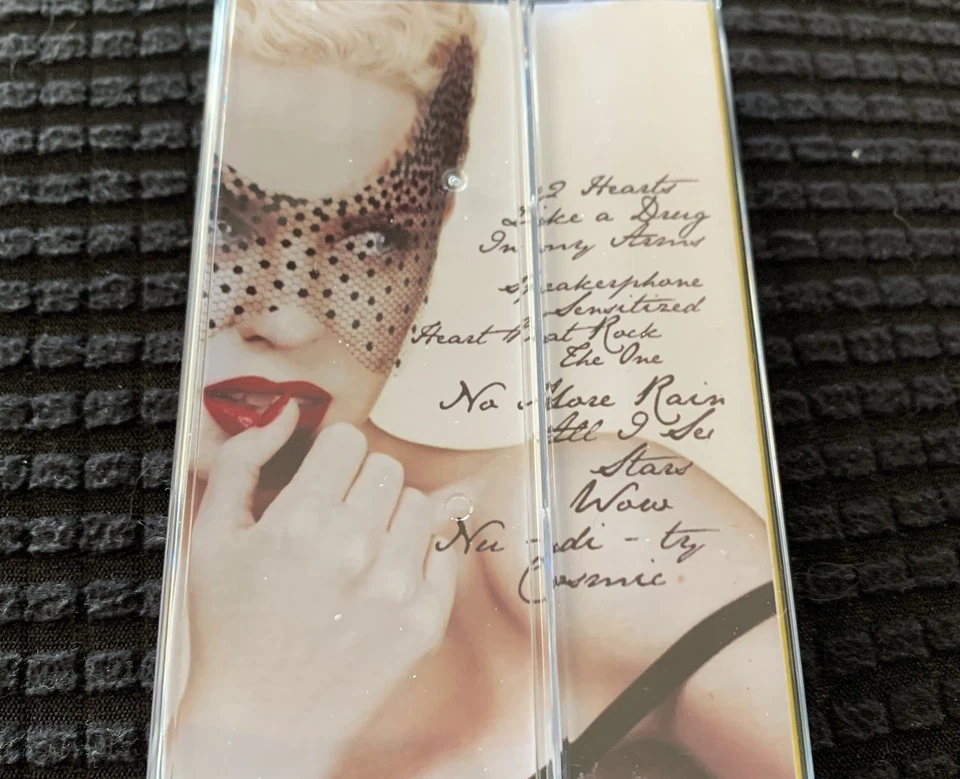 2 Hearts
Like a Drug
In my Arms
Speakerphone
Sensitized
Heart Beat Rock
The One
No More Rain
All I See
Stars
Wow
Nu - di - ty
Cosmic